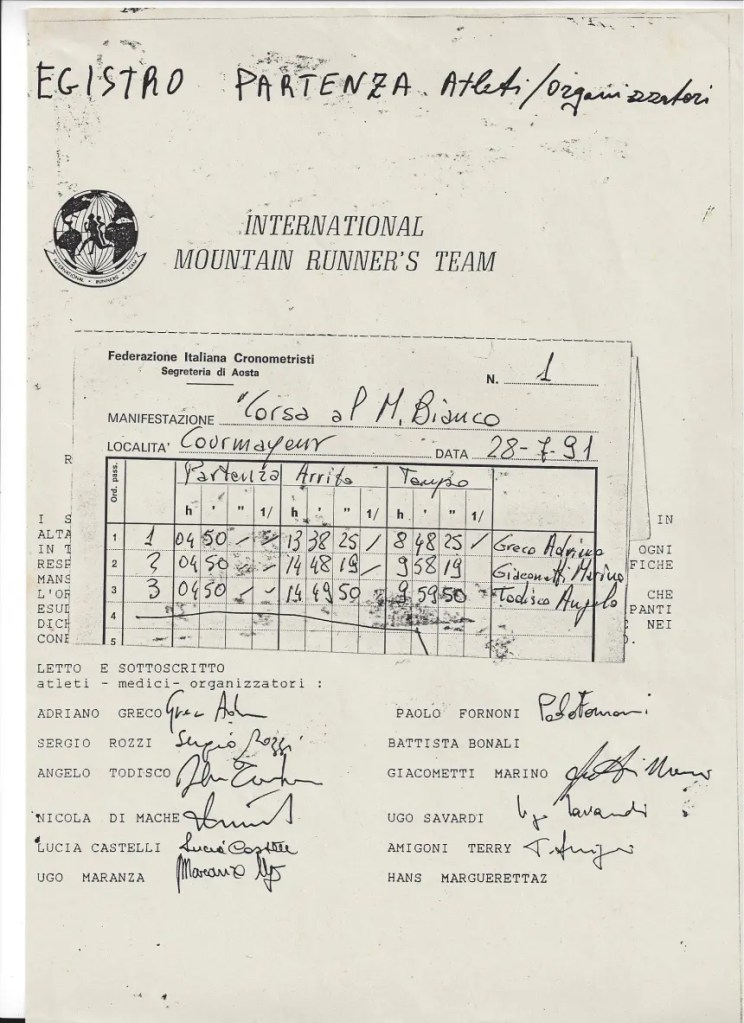 EGISTRO PARTENZA Atleti/organizzatori
INTERNATIONAL
MOUNTAIN RUNNER'S TEAM
INTERNATIONAL • RUNNERS • TEAM
Federazione Italiana Cronometristi
Segreteria di Aosta
N. 1
MANIFESTAZIONE "Corsa al M. Bianco
LOCALITA' Courmayeur DATA 28-7-91
Ord. pass. Partenza Arrivo Tempo
h ' " 1/ h ' " 1/ h ' " 1/
1 1 04 50 - - 13 38 25 / 8 48 25 / Greco Adriano
2 2 04 50 - - 14 48 19 / 9 58 19 Giacometti Marino
3 3 04 50 - - 14 49 50 9 59 50 Todisco Angelo
4
5
R
I S IN
ALTA
IN T OGNI
RESP FICHE
MANS
L'OR CHE
ESUD PANTI
DICH NEI
CONF O.
LETTO E SOTTOSCRITTO
atleti - medici- organizzatori :
ADRIANO GRECO Greco Adriano PAOLO FORNONI Paolo Fornoni
SERGIO ROZZI Sergio Rozzi BATTISTA BONALI
ANGELO TODISCO GIACOMETTI MARINO
NICOLA DI MACHE UGO SAVARDI Ugo Savardi
LUCIA CASTELLI Lucia Castelli AMIGONI TERRY T. Amigoni
UGO MARANZA Maranza Ugo HANS MARGUERETTAZ